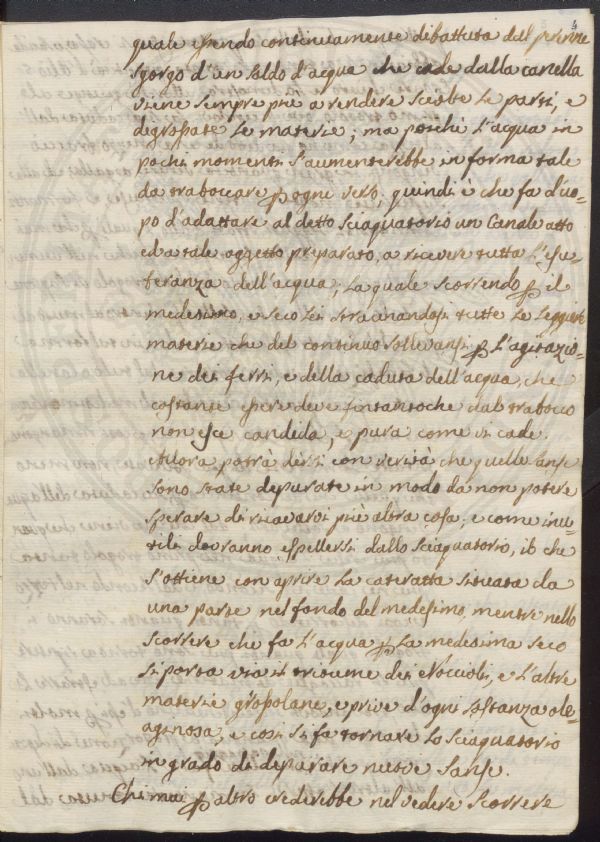 4
quale essendo continuamente dibattuta dal perenne
sgorgo d'un soldo d'acqua che cade dalla canella
viene sempre più a rendere scevre le parti, e
degrossate le materie; ma poiché l'acqua in
pochi momenti s'aumenterebbe in forma tale
da traboccare ogni verso, quindi è che fa d'uo-
po d'adattare al detto sciaquatorio un Canale atto
ed a tale oggetto preparato, a ricevere tutta l'esu-
beranza dell'acqua, la quale scorrendo il
medesimo, e seco lei stracinandosi tutte le leggiere
materie che del continuo sollevansi l'agitazio-
ne dei ferri, e della caduta dell'acqua, che
costante essere deve fintantoche dal trabocco
non esce candida, e pura come vi cade.
Allora potrà dirsi con verità che quelle sanse
sono state depurate in modo da non potere
sperare di ricavarvi più altra cosa, e come inu-
tili dovranno espellersi dallo sciaquatorio, il che
s'ottiene con aprire la cateratta situata da
una parte nel fondo del medesimo, mentre nello
scorrere che fa l'acqua la medesima seco
si porta via il tritume dei Noccioli, e l'altre
materie grossolane, e prive d'ogni sostanza ole-
aginosa, e così si fa tornare lo sciaquatorio
in grado di depurare nuove sanse.
Chi mai altro crederebbe nel vedere scorrere